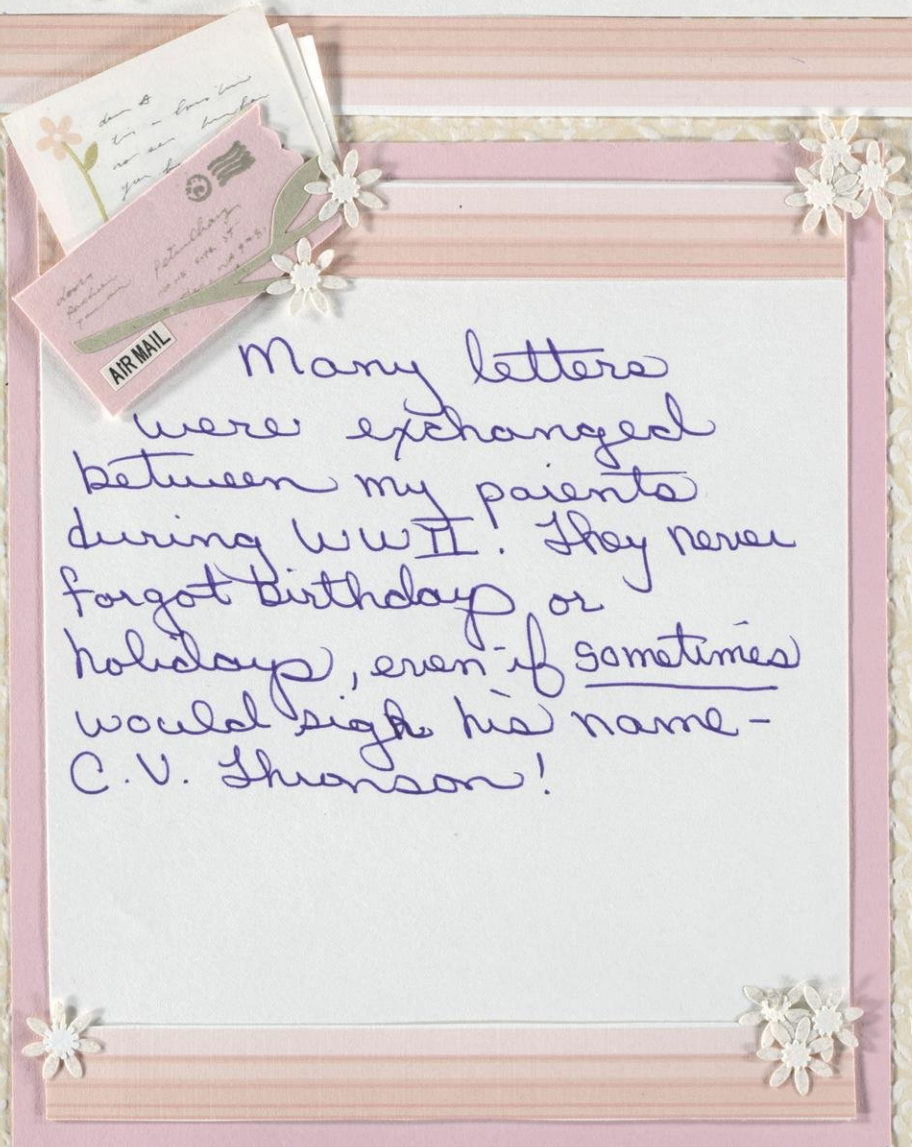 AIR MAIL
Many letters
were exchanged
between my parents
during WWII. They never
forgot birthdays or
holidays, even if sometimes
would sigh his name-
C.V. Thronson!